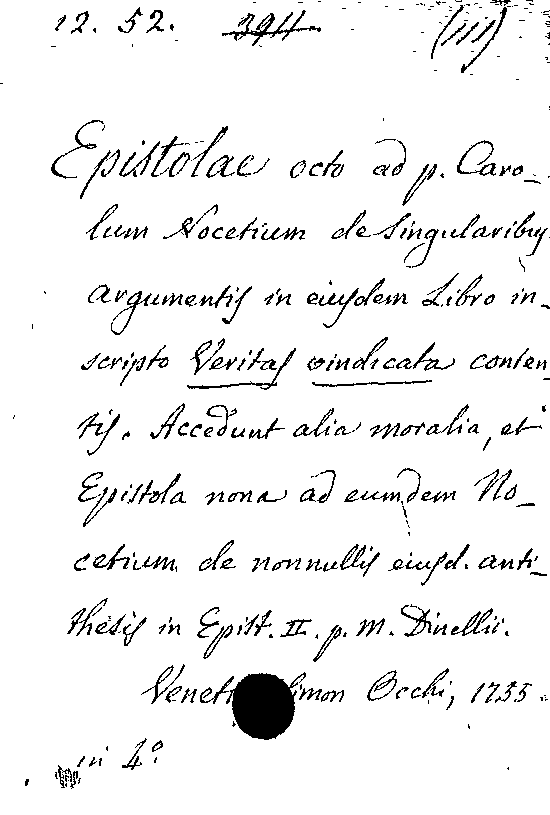 12. 52. 394. (111)
Epistolae octo ad p. Caro_
lum Nocetium de Singularibus
argumentis in eiusdem Libro in_
scripto Veritas vindicata conten
tis. Accedunt alia moralia, et
Epistola nona ad eumdem No_
cetium de nonnullis eiusd. anti_
thesis in Epist. II. p. M. Dinellii.
Simon Occhi, 1755.
in 4º